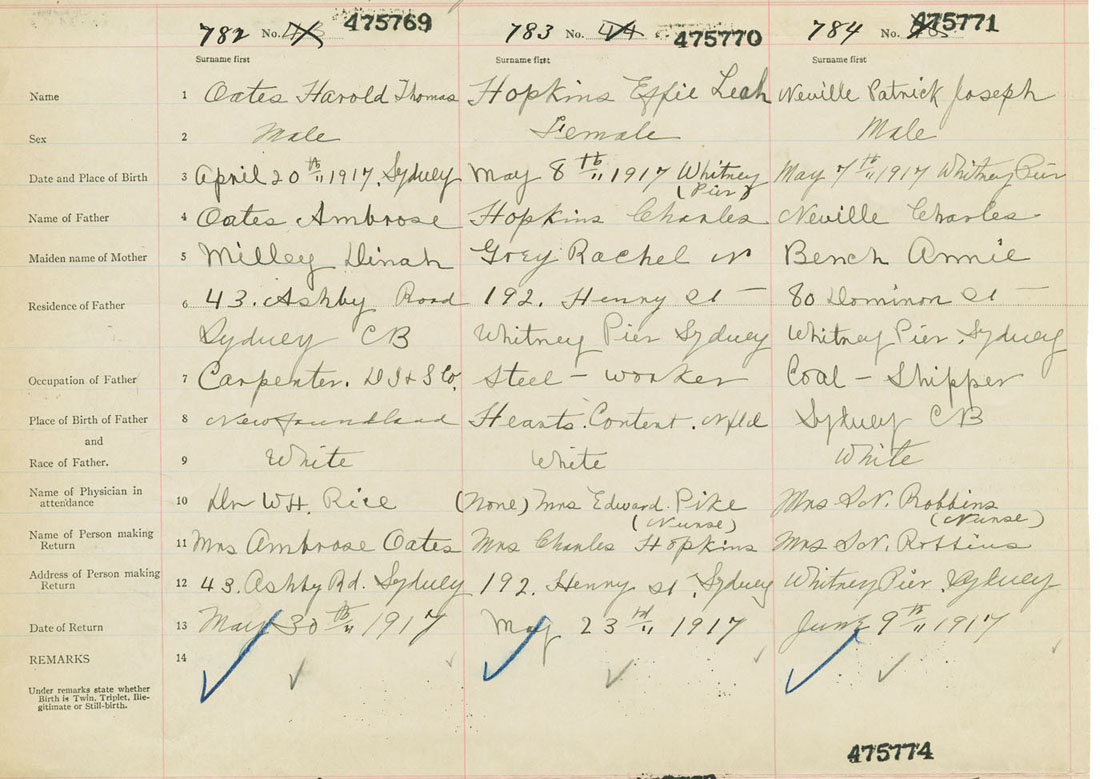 782 No. 475769 783 No. 475770 784 No. 475771
Surname first Surname first Surname first
Name 1 Oates Harold Thomas Hopkins Effie Leah Neville Patrick Joseph
Sex 2 Male Female Male
Date and Place of Birth 3 April 20th 1917, Sydney May 8th 1917 Whitney (Pier) May 7th 1917 Whitney Pier
Name of Father 4 Oates Ambrose Hopkins Charles Neville Charles
Maiden name of Mother 5 Milley Dinah Grey Rachel Bench Annie
Residence of Father 6 43. Ashby Road 192. Henry St 80 Dominon St
Sydney CB Whitney Pier Sydney Whitney Pier, Sydney
Occupation of Father 7 Carpenter. D I & S Co. Steel - worker Coal - Shipper
Place of Birth of Father 8 Newfoundland Hearts. Content. Nfld Sydney CB
and
Race of Father. 9 White White White
Name of Physician in
attendance 10 Dr W.H. Rice (None) Mrs Edward. Pike Mrs S.N. Robbins
(Nurse) (Nurse)
Name of Person making
Return 11 Mrs Ambrose Oates Mrs Charles Hopkins Mrs S.N. Robbins
Address of Person making
Return 12 43. Ashby Rd. Sydney 192. Henry St. Sydney Whitney Pier. Sydney
Date of Return 13 May 30th 1917 May 23rd 1917 June 9th 1917
REMARKS 14
Under remarks state whether
Birth is Twin, Triplet, Ille-
gitimate or Still-birth.
475774